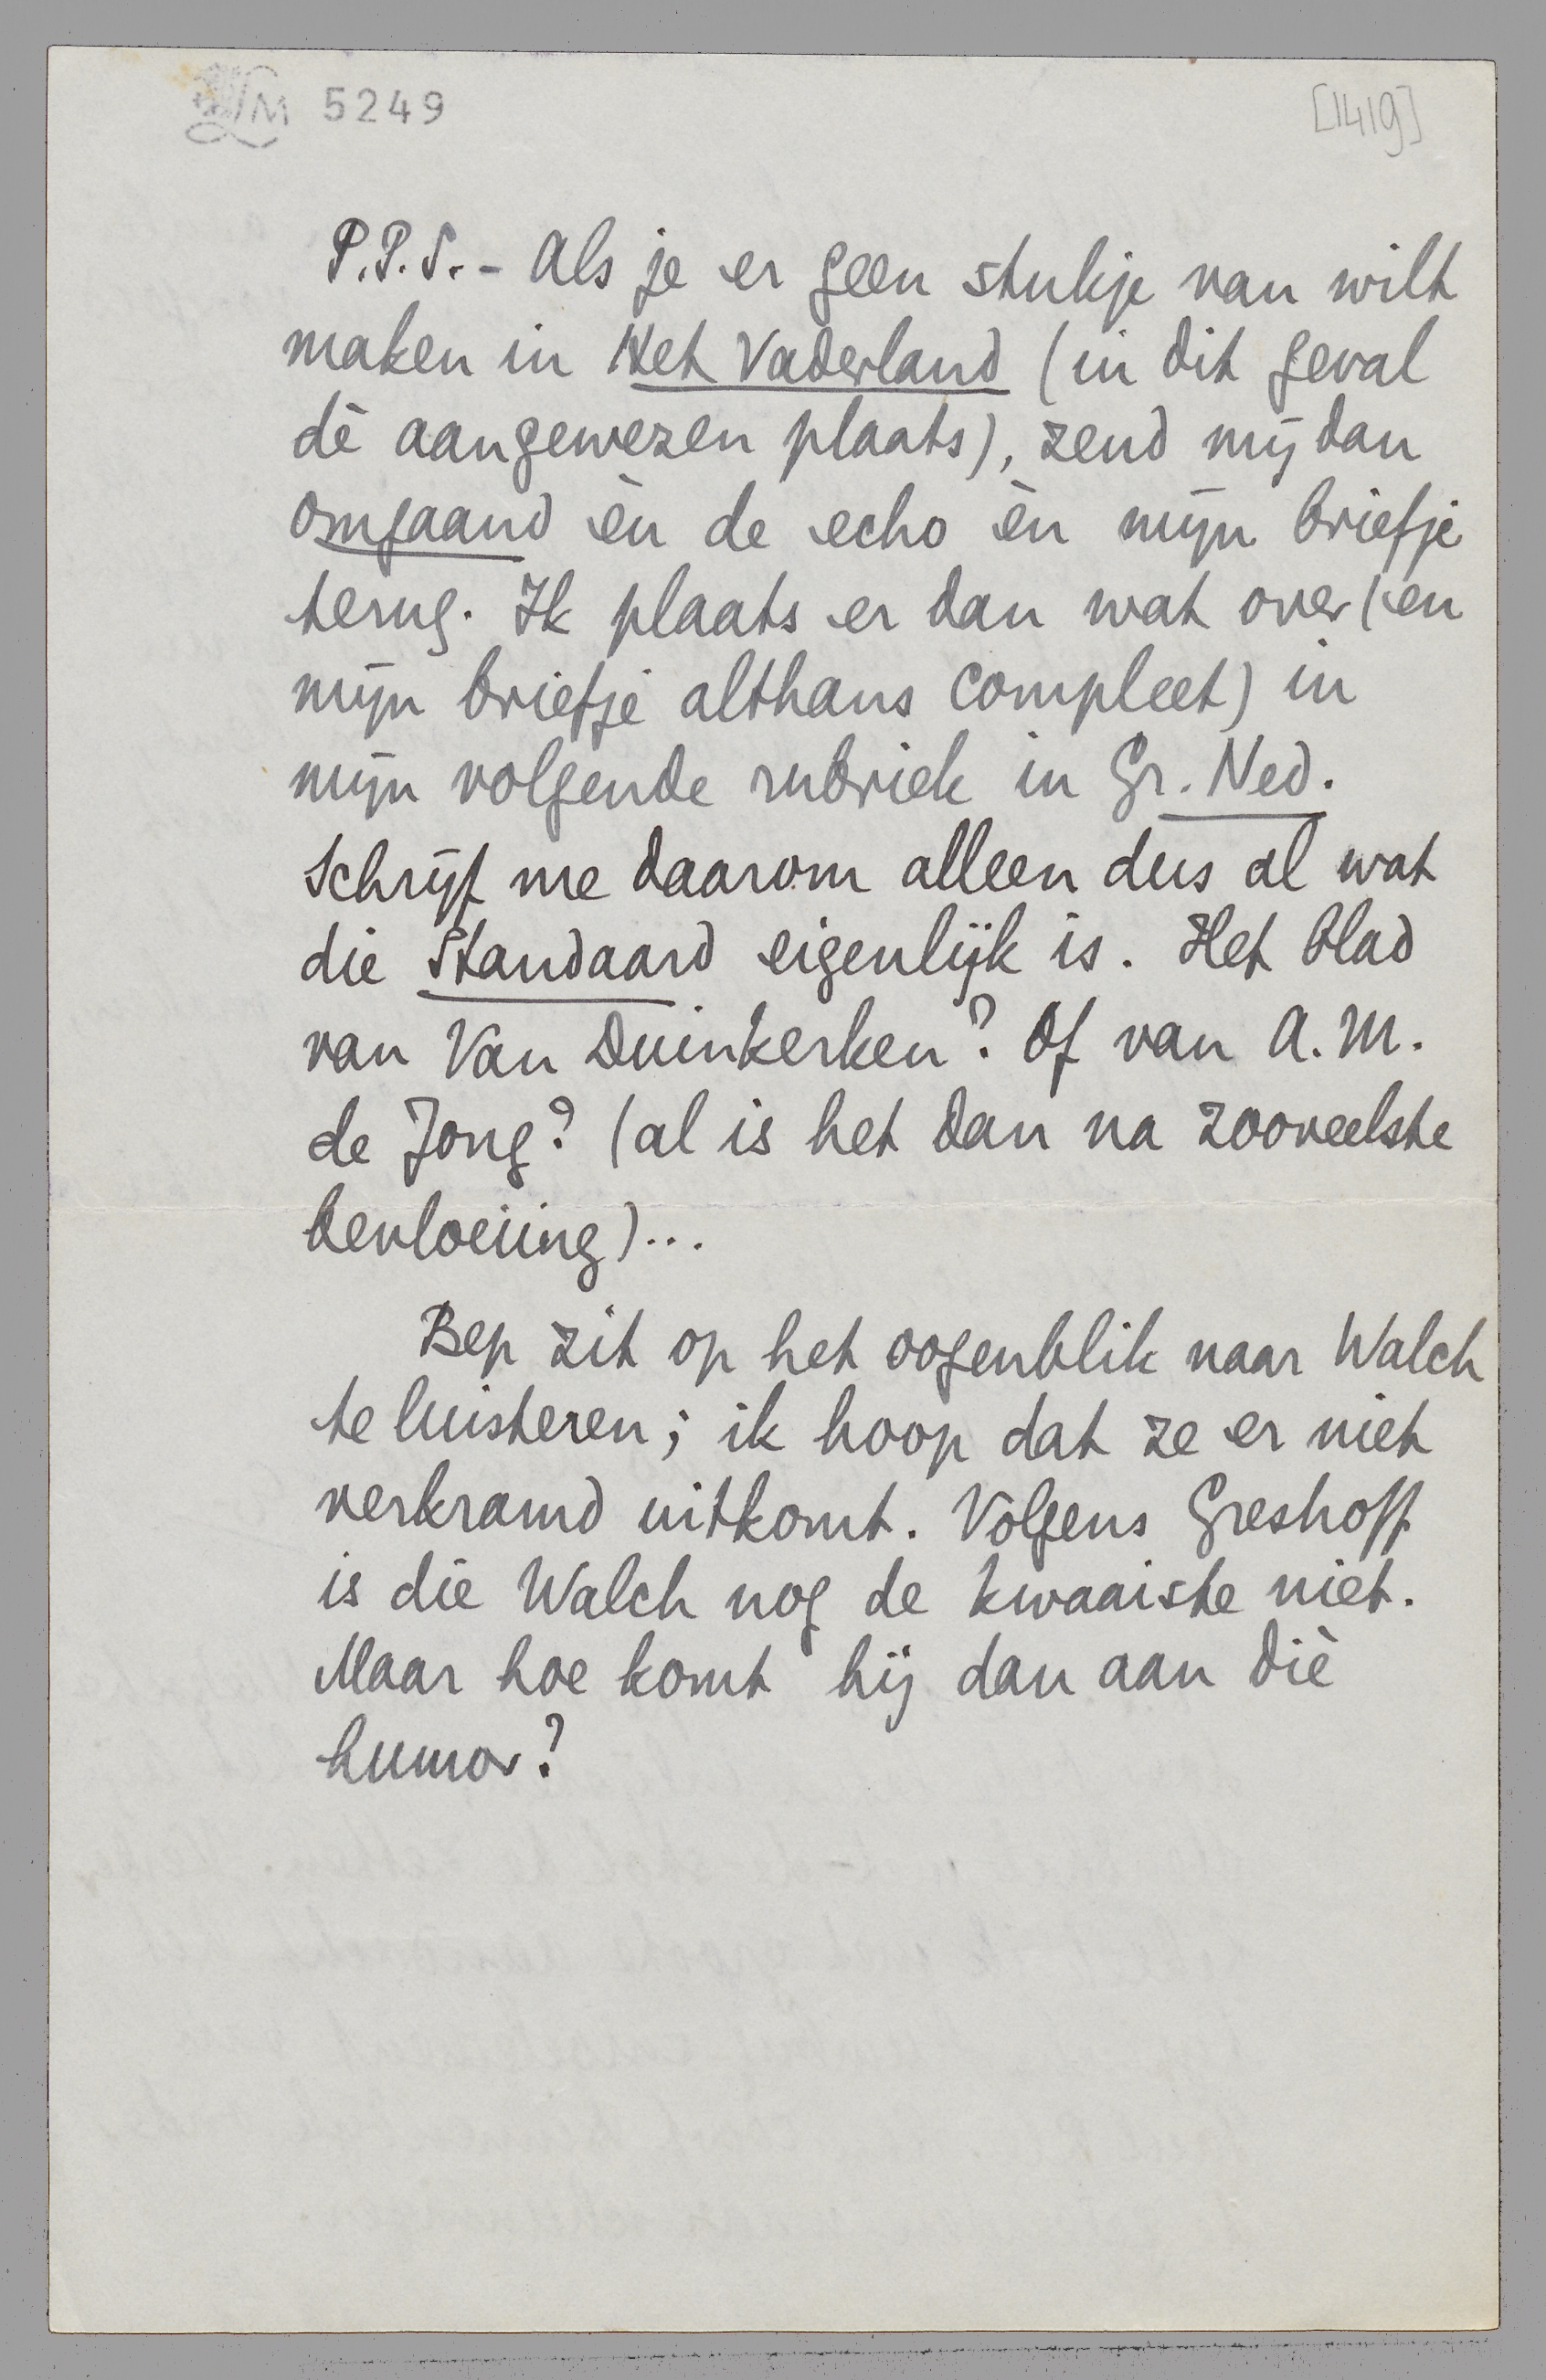 LM 5249
[1419]
P.P.S. - Als je er geen stukje van wilt
maken in Het Vaderland (in dit geval
dè aangewezen plaats), zend mij dan
omgaand èn de echo èn mijn briefje
terug. Ik plaats er dan wat over (en
mijn briefje althans compleet) in
mijn volgende rubriek in Gr. Ned.
Schrijf me daarom alleen dus al wat
die Standaard eigenlijk is. Het blad
van Van Duinkerken? Of van A.M.
de Jong? (al is het dan na zooveelste
bevloeiing)...
Bep zit op het oogenblik naar Walch
te luisteren; ik hoop dat ze er niet
verkramd uitkomt. Volgens Greshoff
is die Walch nog de kwaaiste niet.
Maar hoe komt hij dan aan diè
humor?